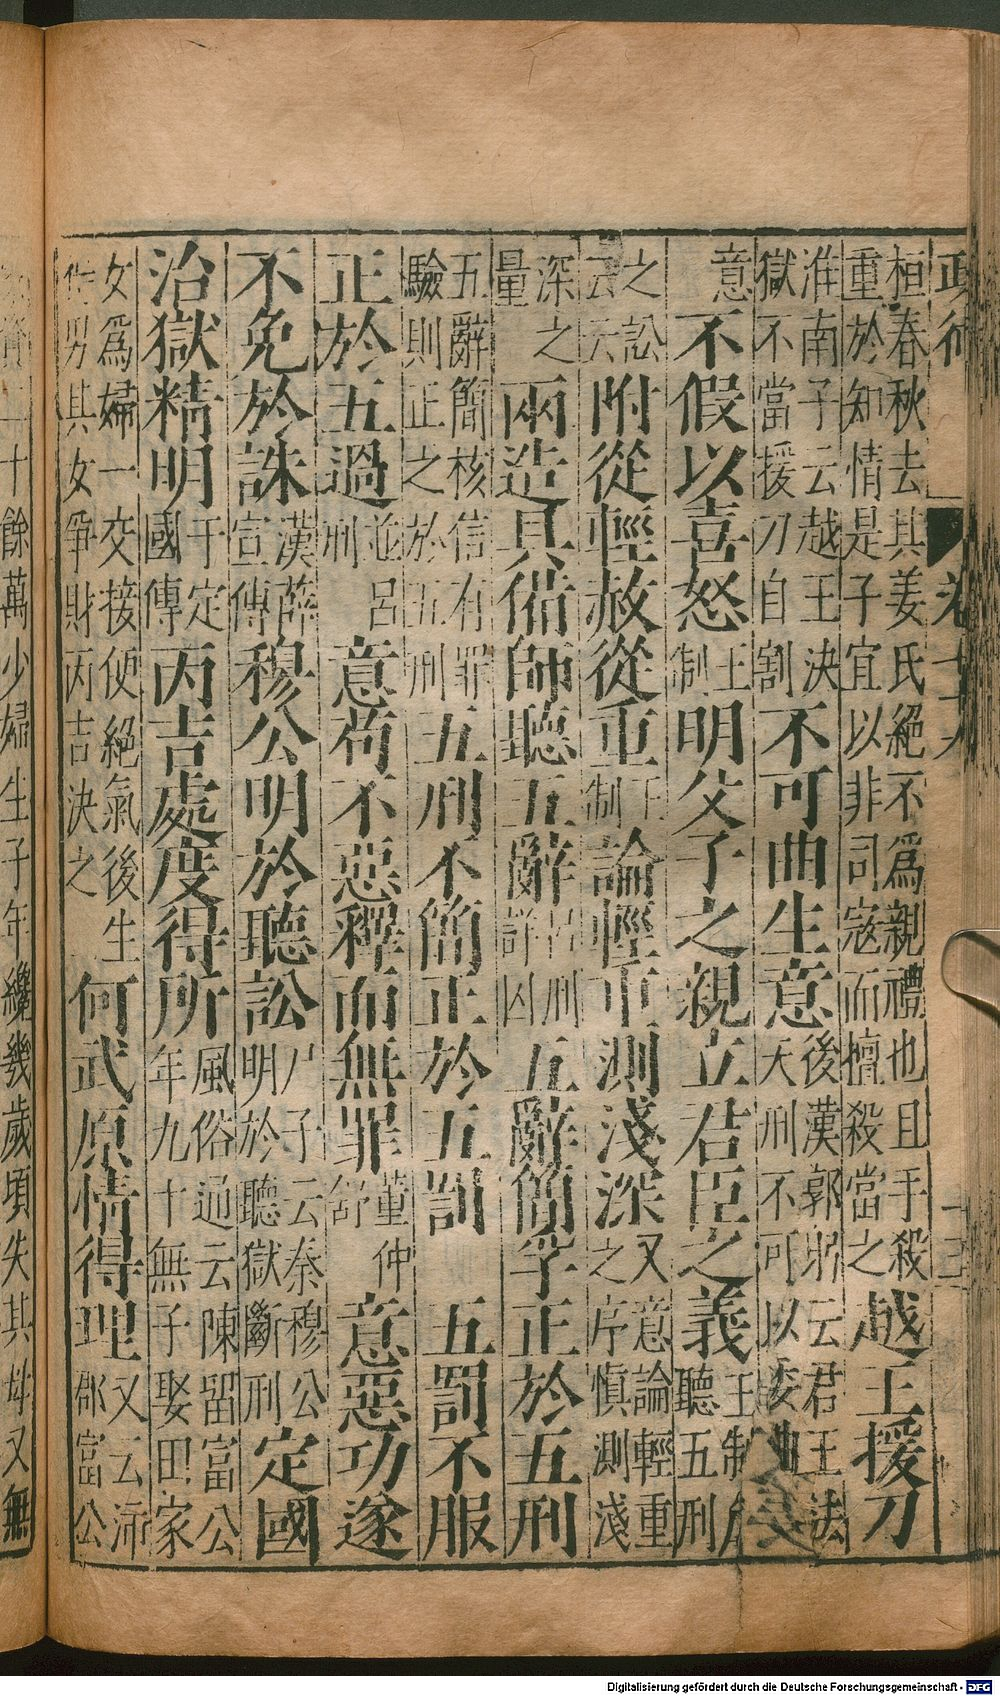 政術 卷十六 十三
桓春秋去其姜氏絕不為親禮也且手殺
重於知情是子宜以非司寇而擅殺當之越王援刀
淮南子云越王決
獄不當援刀自割不可曲生意後漢郭躬云君王法
天刑不可以委曲
意不假以喜怒王制明父子之親立君臣之義王制凡
聽五刑
之訟
云云附從輕赦從重王制論輕重測淺深又意論輕重
之序慎測淺
深之
量兩造具俻師聽五辭呂刑囚五辭簡孚正於五刑
五辭簡核信有罪
驗則正之於五刑五刑不簡正於五罰 五罰不服
正於五過並呂刑意苟不惡釋而無罪董仲舒意惡功遂
不免於誅漢薛宣傳穆公明於聽訟尸子云秦穆公
明於聽獄斷刑定國
治獄精明于定國傳丙吉處度得所風俗通云陳留富公
年九十無子娶田家
女為婦一交接便絕氣後生
男其女爭財丙吉決之何武原情得理又云沛
郡富公
資二十餘萬少婦生子年纔幾歲頃失其母又無
Digitalisierung gefördert durch die Deutsche Forschungsgemeinschaft - DFG